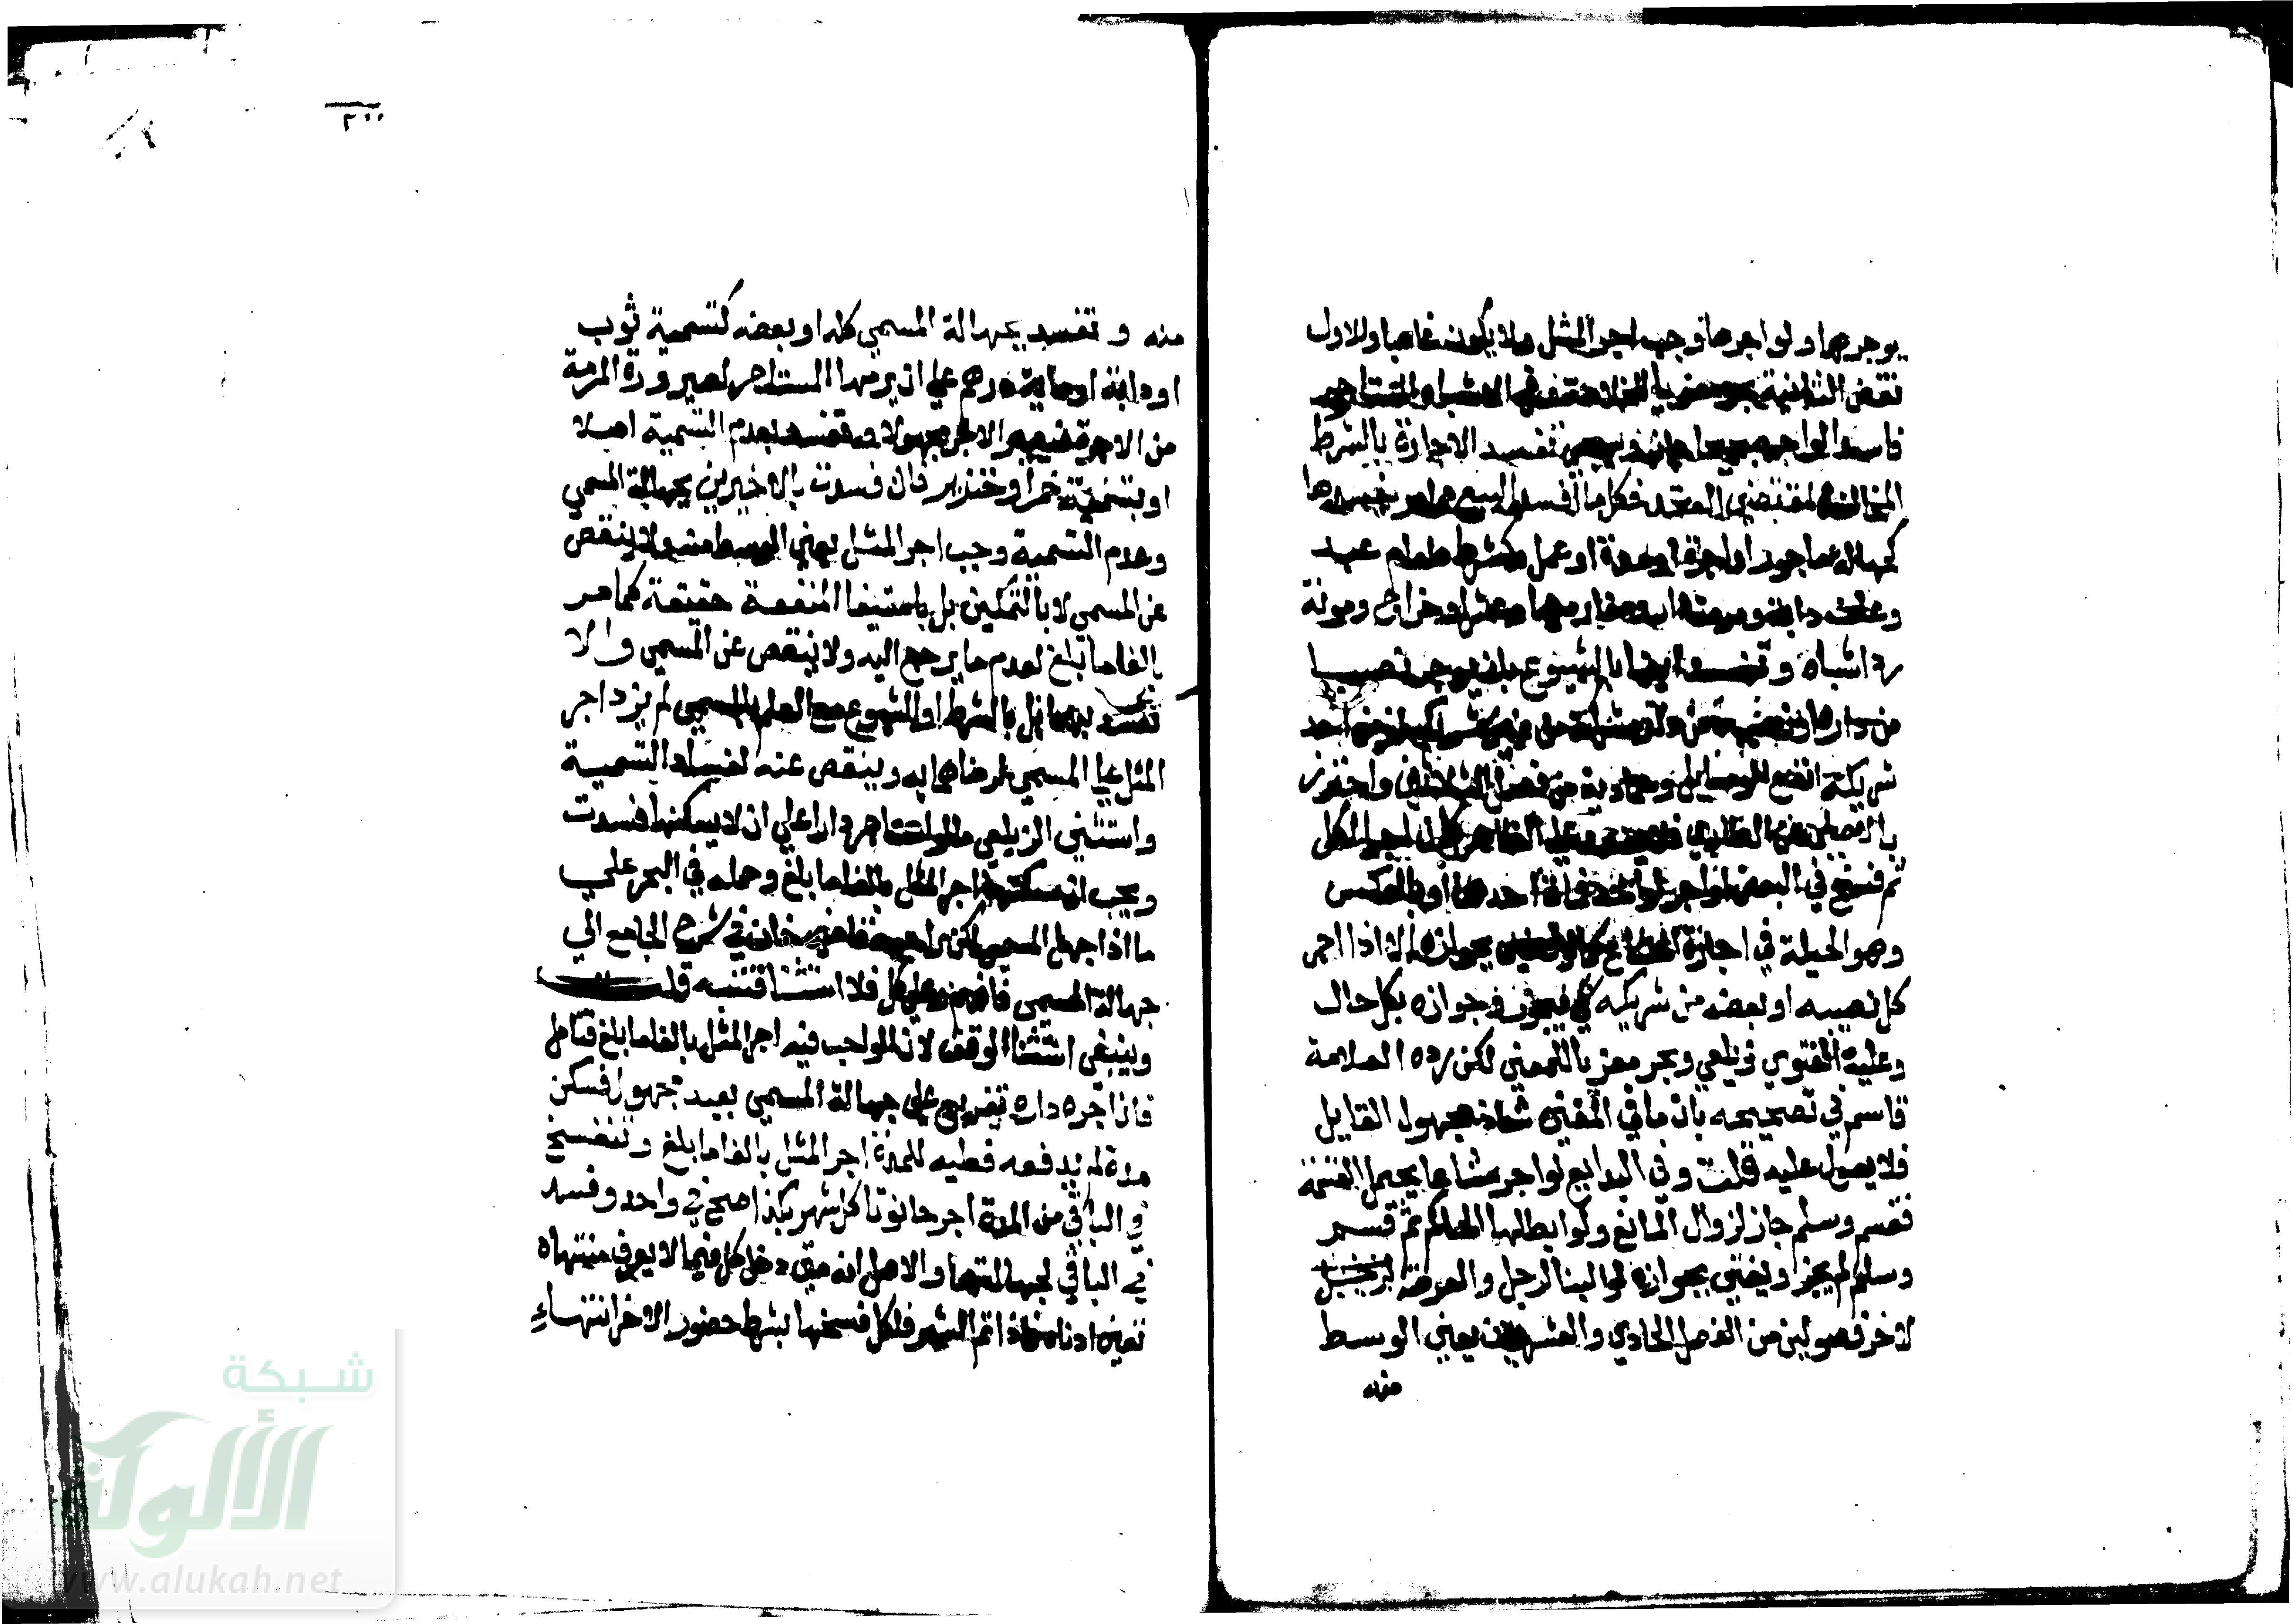 يوجرها ولو اجرها وجب اجر المثل ولا يكون غاصبا وللاول
نقض الثانية المستاجر
فاسدا لواجر تفسد الاجارة بالشرط
المخالفة لمقتضي العقد فكل ما افسد البيع مما مر يفسدها
كجهالة ماجور او اجرة او مدة او عمل وكشرط طعام عبد
وعلف دابة ومرمة الدار ومغارمها وعشر او خراج ومونة
رد اشباه وتفسد ايضا بالشيوع بان يوجر نصيبا
من داره
شريكه انفع الوسايل وعمادية من فصل الثلاثين واحترز
بالاصلي عن الطاري فلا يفسد علي الظاهر كان اجر الكل
ثم فسخ في البعض او اجرا لواحد فمات احدهما او بالعكس
وهو الحيلة في اجارة المشاع الا اذا اجر
كل نصيبه او بعضه من شريكه فيجوز وجوازه بكل حال
وعليه الفتوي زيلعي وبحر معزيا للمغني لكن رده العلامة
قاسم في تصحيحه بان ما في المغني شاذ مجهول القايل
فلا يعول عليه قلت وفي البدايع لو اجر مشاعا يحتمل القسمة
فقسم وسلم جاز لزوال المانع ولو ابطلها الحاكم ثم قسم
وسلم لم يجز ويفتي بجوازه لو البنا لرجل والعرصة
لاخر فصولين من الفصل الحادي والعشرين يعني الوسط
منه
٢٠٠
منه وتفسد بجهالة المسمي كله او بعضه كتسمية ثوب
او دابة او ماية درهم علي ان يرمها المستاجر لصيرورة المرمة
من الاجرة فيصير الاجر مجهولا وتفسد بعدم التسمية اصلا
او بتسمية خمر او خنزير فان فسدت بالاخيرين بجهالة المسمي
وعدم التسمية وجب اجر المثل يعني الوسط منه ولا ينقص
عن المسمي لا بالتمكين بل باستيفا المنفعة حقيقة كما مر
بالغا ما بلغ لعدم ما يرجع اليه ولا ينقص عن المسمي والا
تفسد بهما بل بالشرط او الشيوع مع العلم بالمسمي لم يزد اجر
المثل علي المسمي لرضاهما به وينقص عنه لفساد التسمية
واستثني الزيلعي ما لو استاجر دارا علي ان لا يسكنها فسدت
ويجب ان سكنها اجر المثل بالغا ما بلغ وحمله في البحر علي
ما اذا جهل المسمي لكن ارجعه قاضي خان في شرح الجامع الي
جهالة المسمي فافهم وعلي كل فلا استثنا فتنبه قلت
وينبغي استثنا الوقف لان الواجب فيه اجر المثل بالغا ما بلغ فتامل
فان اجره داره تفريع علي جهالة المسمي بعبد مجهول فسكن
مدة لم يدفعه فعليه للمدة اجر المثل بالغا ما بلغ وتنفسخ
في الباقي من المدة اجر حانوتا كل شهر بكذا صح في واحد وفسد
في الباقي لجهالتها والاصل انه متي دخل كل فيما لا يعرف منتهاه
تعين ادناه فاذا تم الشهر فلكل فسخها بشرط حضور الاخر انتهاء
شبكة
الألوكة
www.alukah.net